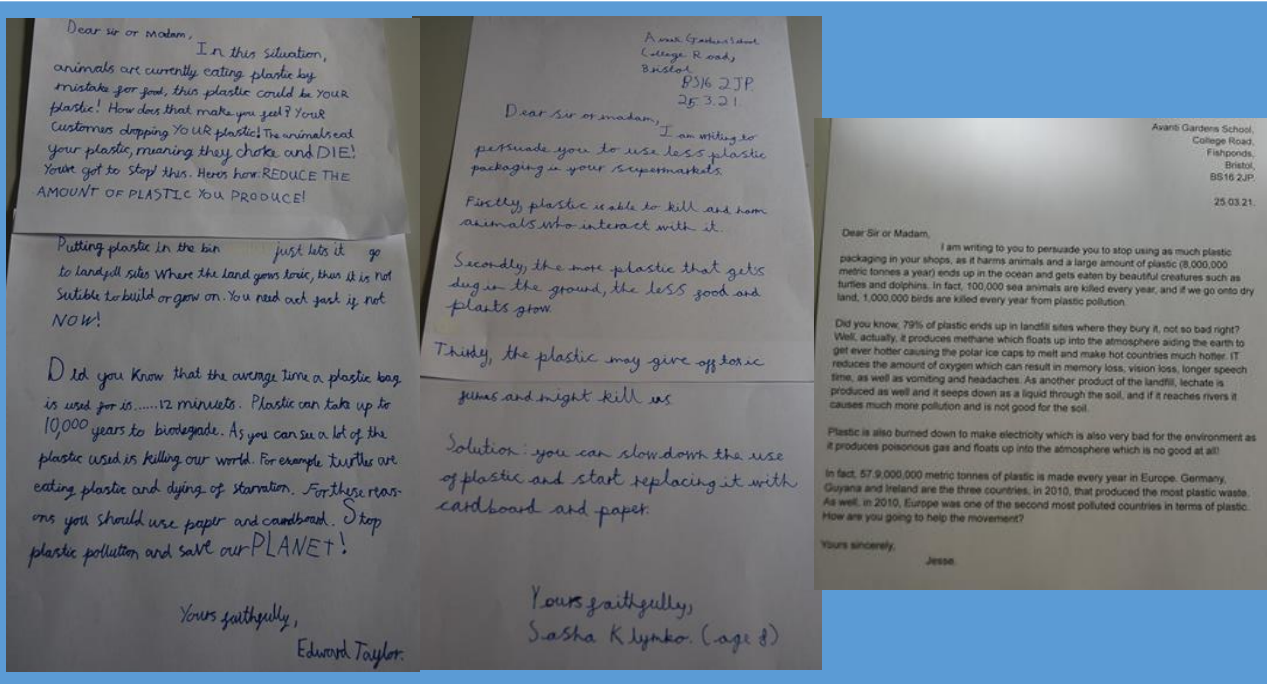 Dear sir or Madam,
In this situation,
animals are currently eating plastic by
mistake for food, this plastic could be YOUR
plastic! How does that make you feel? YOUR
Customers dropping YOUR plastic! The animals eat
your plastic, meaning they choke and DIE!
Youve got to stop this. Heres how: REDUCE THE
AMOUNT OF PLASTIC YOU PRODUCE!
Putting plastic in the bin just lets it go
to landfill sites where the land grows toxic, thus it is not
Sutible to build or grow on. You need act fast if not
NOW!
Did you know that the average time a plastic bag
is used for is......12 minuets. Plastic can take up to
10,000 years to biodegrade. As you can see a lot of the
plastic used is killing our world. For example turtles are
eating plastic and dying of starvation. For these reas-
ons you should use paper and cardboard. Stop
plastic pollution and save our PLANET!
Yours faithfully,
Edward Taylor.
Avanti Gardens School
College Road,
Bristol
BS16 2JP.
25.3.21.
Dear Sir or madam,
I am writing to
persuade you to use less plastic
packaging in your supermarkets.
Firstly, plastic is able to kill and harm
animals who interact with it.
Secondly, the more plastic that gets
dug in the ground, the less food and
plants grow.
Thirdly, the plastic may give off toxic
fumes and might kill us
Solution: you can slow down the use
of plastic and start replacing it with
cardboard and paper.
Yours faithfully,
Sasha Klymko. (age 8)
Avanti Gardens School,
College Road,
Fishponds,
Bristol,
BS16 2JP.
25.03.21.
Dear Sir or Madam,
I am writing to you to persuade you to stop using as much plastic
packaging in your shops, as it harms animals and a large amount of plastic (8,000,000
metric tonnes a year) ends up in the ocean and gets eaten by beautiful creatures such as
turtles and dolphins. In fact, 100,000 sea animals are killed every year, and if we go onto dry
land, 1,000,000 birds are killed every year from plastic pollution.
Did you know, 79% of plastic ends up in landfill sites where they bury it, not so bad right?
Well, actually, it produces methane which floats up into the atmosphere aiding the earth to
get ever hotter causing the polar ice caps to melt and make hot countries much hotter. IT
reduces the amount of oxygen which can result in memory loss, vision loss, longer speech
time, as well as vomiting and headaches. As another product of the landfill, lechate is
produced as well and it seeps down as a liquid through the soil, and if it reaches rivers it
causes much more pollution and is not good for the soil.
Plastic is also burned down to make electricity which is also very bad for the environment as
it produces poisonous gas and floats up into the atmosphere which is no good at all!
In fact, 57.9,000,000 metric tonnes of plastic is made every year in Europe. Germany,
Guyana and Ireland are the three countries, in 2010, that produced the most plastic waste.
As well, in 2010, Europe was one of the second most polluted countries in terms of plastic.
How are you going to help the movement?
Yours sincerely,
Jesse.